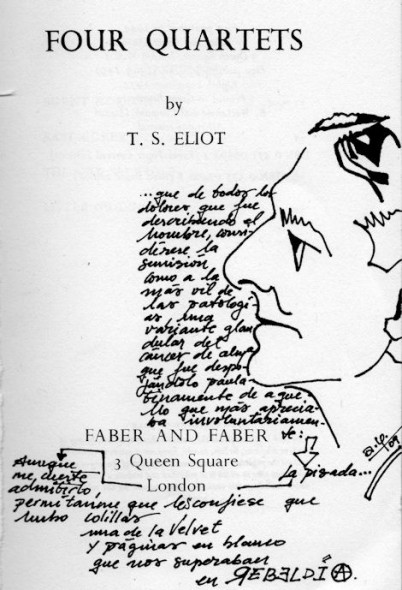 FOUR QUARTETS
by
T. S. ELIOT
...que de todos los
dolores que fue
describiendo el
hombre, consi-
dérese la
sumisión
como a la
más vil de
las patologí-
as una
variante glan
dular del
cáncer de alma
que fue despo-
jándolo paula-
tinamente de aque-
llo que más aprecia-
ba involuntariamen-
te:
La pisada...
FABER AND FABER
3 Queen Square
London
Aunque
me cueste
admitirlo,
permítanme que les confiese que
hubo colillas
una de la Velvet
y páginas en blanco
que nos superaban
en REBELDÍA.